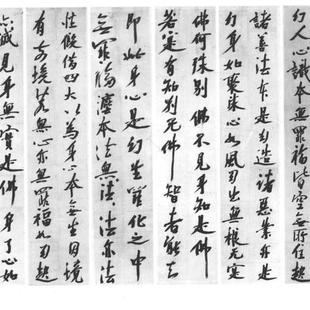 幻人心識本無罪福皆空無所住起
諸善法本是幻造諸惡業亦是
幻身如聚沫心如風幻出無根無實
佛何殊別佛不見身知是佛
若實有知別無佛智者能
即如身心是幻生幻化之中
無罪福法本法無法無法法亦法
性假借四大以為身心本無生因境
有前境若無心亦無罪福如幻起
亦滅見身無實是佛身了心如